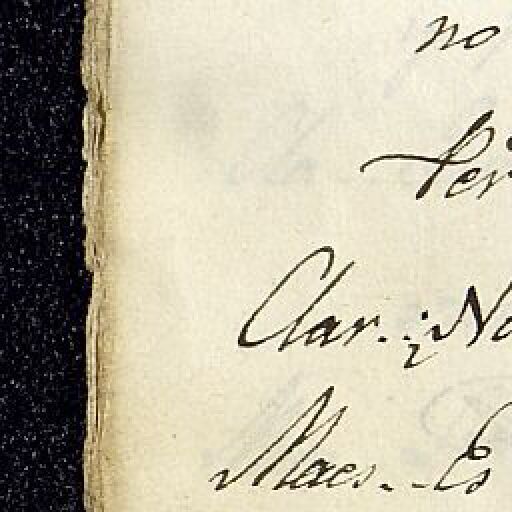 no
Per
Clar. ¿No
Maes. Es